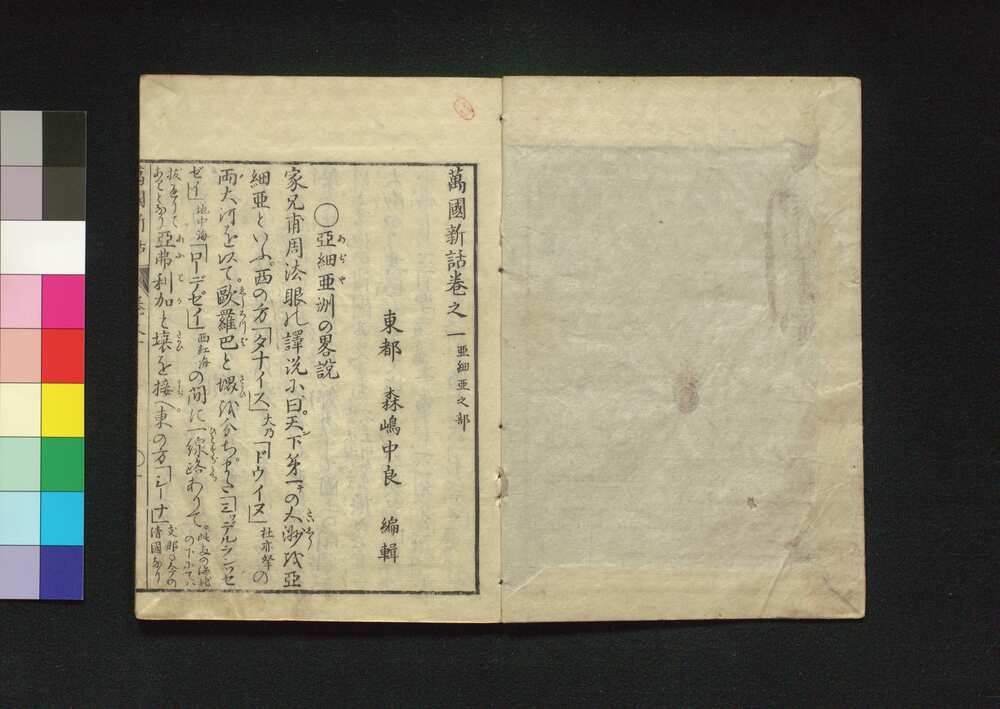 萬國新話卷之一 亞細亞之部
東都 森嶋中良 編輯
〇亞細亞洲の畧說
家兄甫周法眼の譯說に曰天下第一の大洲を亞
細亞といふ。西の方「タナイス」大乃「ドウイヌ」杜亦拏の
両大河を以て歐羅巴と堺を分ち。また「ミッデルランッセ
ゼイ」地中海「ローデゼイ」西紅海の間に一線路ありて。
亞弗利加と壤を接へ東の方「シーナ」支那乃今の清國なり